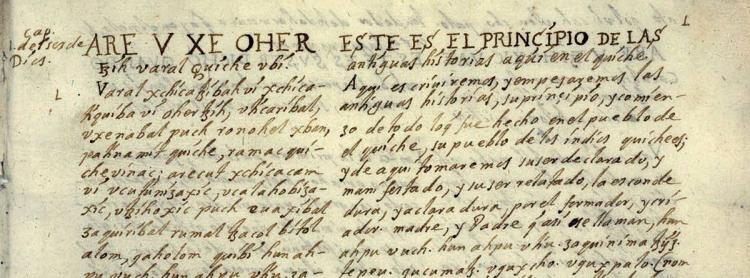 Cap.
de ser de
Dios.
1
ARE V XE OHER
ꜩih varal Quiche vbi.
Varal xchicaꜩibah vi xchica-
tiquiba vi oher ꜩih, vticaribal,
vxenabal puch ronohel xban,
pa tinamit quiche, ramac qui-
che vinac; arecut xchicacam
vi vcutunizaxic, vcalahobiza-
xic, vtzihoxic puch euaxibal
zaquiribal rumal tzacol bitol
alom, qaholom quibi hun ah-
pu vuch hun ahpu vhu, za-
1
ESTE ES EL PRINCIPIO DE LAS
antiguas historias aqui en el quiche.
Aqui escriviremos, y empezaremos las
antiguas historias, su principio, y comien-
zo de todo lo q fue hecho en el pueblo de
el quiche, su pueblo de los indios quichees;
y de aqui tomaremos su ser declarado, y
manifestado, y su ser relatado, la esconde
dura, y aclaradura por el formador, y cri-
ador. madre, y Padre q asi se llaman, hun
ahpu vuch. hun ahpu vhu. zaquinima
tepeu. vqux cho. vqux palo. (rom